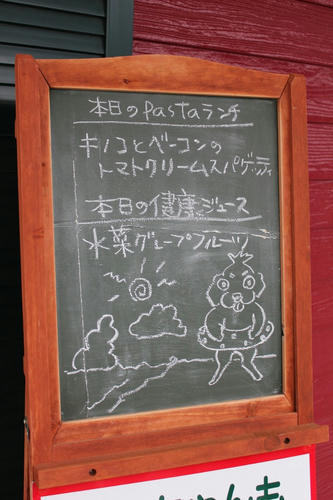 本日のPastaランチ
キノコとベーコンの
トマトクリームスパゲッティ
本日の健康ジュース
水菜グレープフルーツ